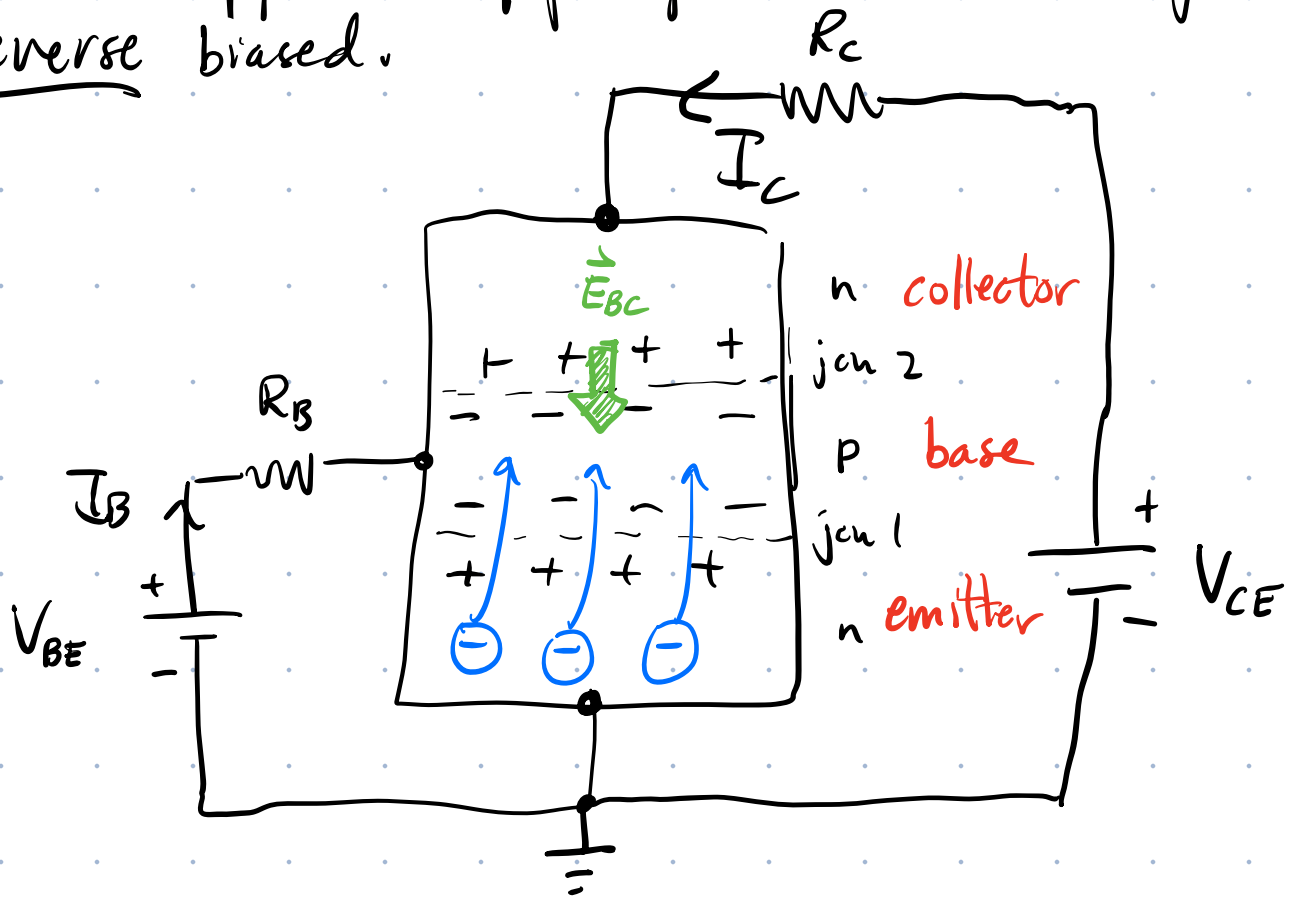 reverse biased.
R_C
I_C
E_BC
n collector
+ + + +
jcn 2
- - - -
R_B
p base
I_B
- - - -
jcn 1
+
+ + + +
+
V_BE
n emitter
V_CE
- - -
-
-